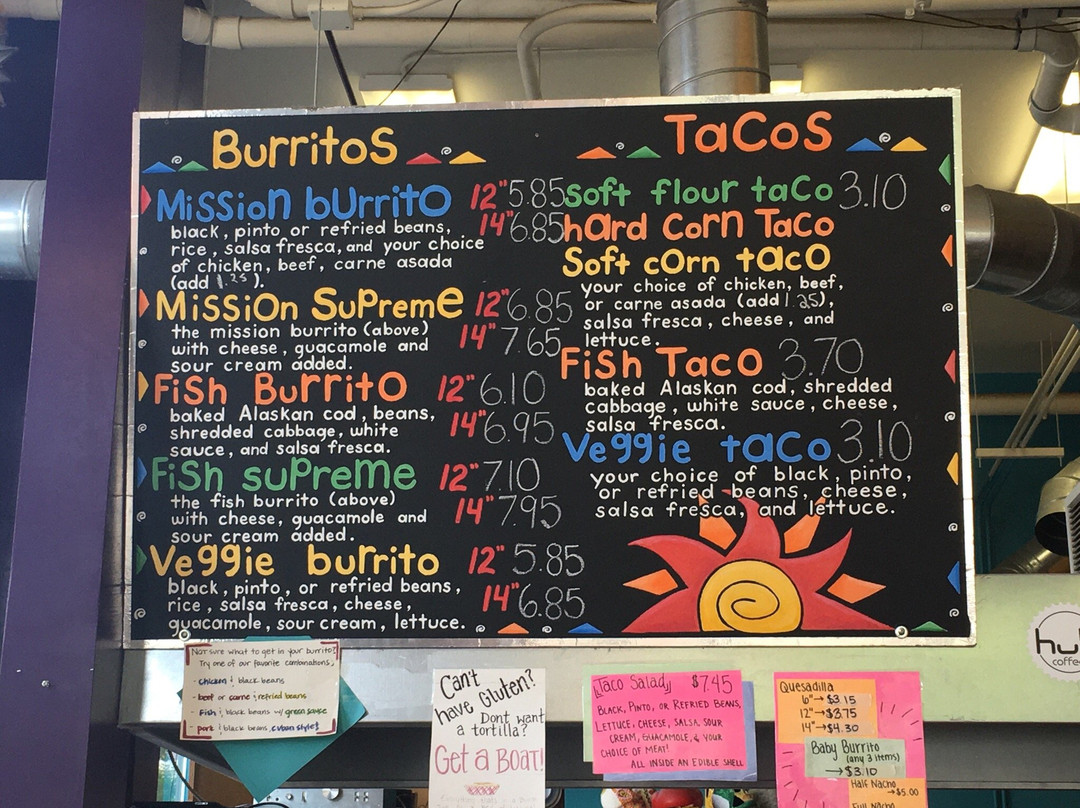 Burritos
Mission burrito 12" 5.85
14" 6.85
black, pinto or refried beans,
rice, salsa fresca, and your choice
of chicken, beef, carne asada
(add 1.25).
Mission Supreme 12" 6.85
14" 7.65
the mission burrito (above)
with cheese, guacamole and
sour cream added.
Fish Burrito 12" 6.10
14" 6.95
baked Alaskan cod, beans,
shredded cabbage, white
sauce, and salsa fresca.
Fish supreme 12" 7.10
14" 7.95
the fish burrito (above)
with cheese, guacamole and
sour cream added.
Veggie burrito 12" 5.85
14" 6.85
black, pinto, or refried beans,
rice, salsa fresca, cheese,
guacamole, sour cream, lettuce.
Tacos
soft flour taco 3.10
hard corn Taco
Soft corn taco
your choice of chicken, beef,
or carne asada (add 1.25),
salsa fresca, cheese, and
lettuce.
Fish Taco 3.70
baked Alaskan cod, shredded
cabbage, white sauce, cheese,
salsa fresca.
Veggie taco 3.10
your choice of black, pinto,
or refried beans, cheese,
salsa fresca, and lettuce.
Not sure what to get in your burrito?
Try one of our favorite combinations,
- chicken & black beans
- beef or carne & refried beans
- Fish & black beans w/ green sauce
- pork & black beans, cuban style!
Can't
have Gluten?
Dont want
a tortilla?
Get a BOAT!
Taco Salad $7.45
BLACK, PINTO, OR REFRIED BEANS,
LETTUCE, CHEESE, SALSA, SOUR
CREAM, GUACAMOLE, & YOUR
CHOICE OF MEAT!
ALL INSIDE AN EDIBLE SHELL
Quesadilla
6" → $3.15
12" → $3.75
14" → $4.30
Baby Burrito
(any 3 items)
→ $3.10
Half Nacho
→ $5.00
Full Nacho
hu
coffe